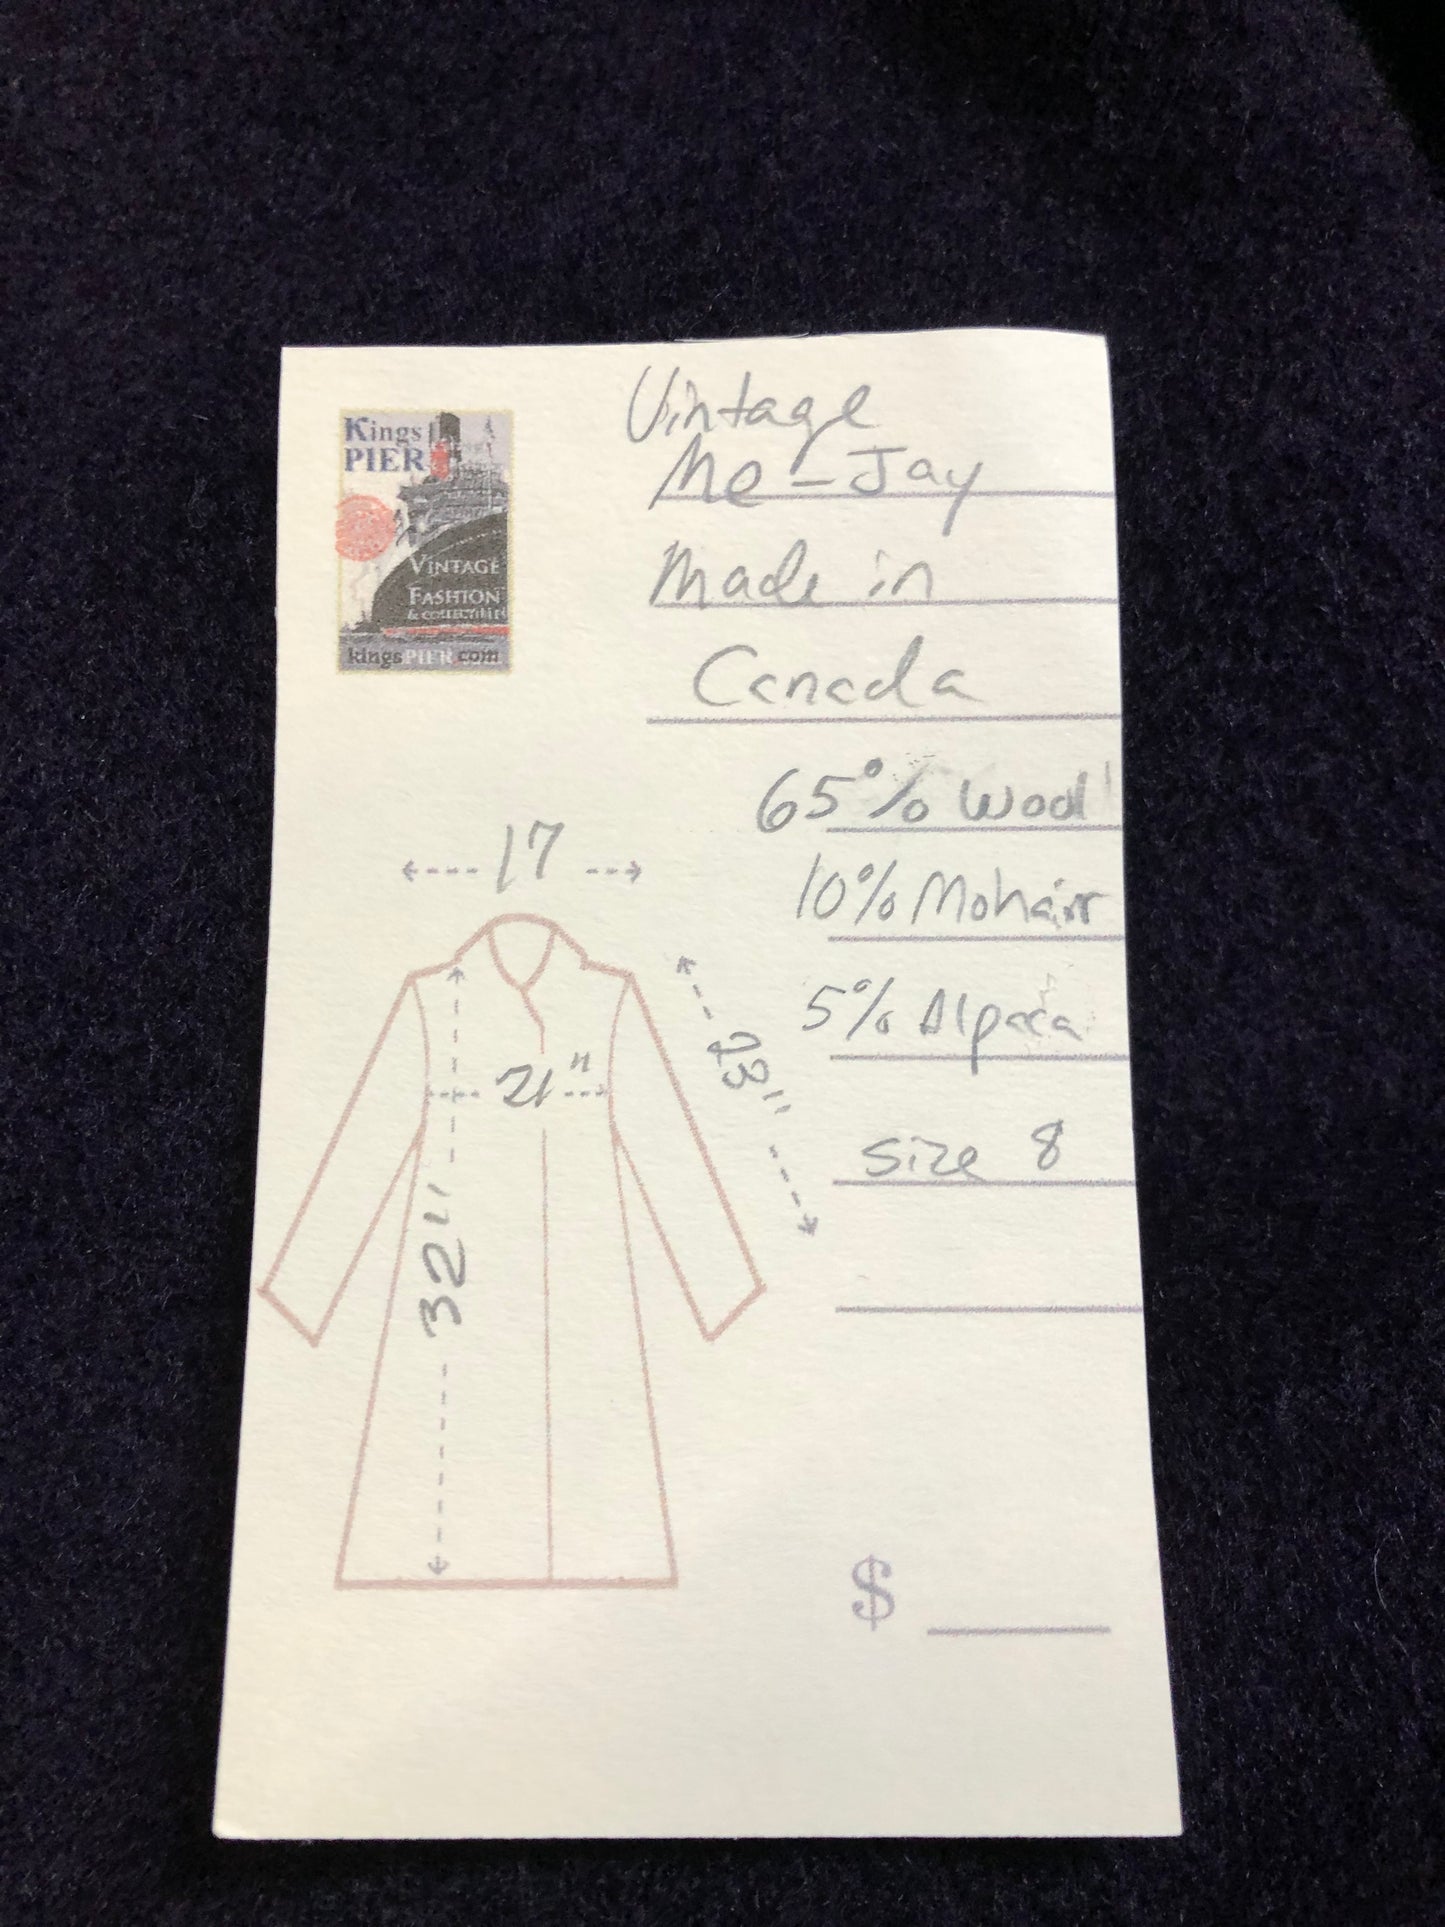 Kings
PIER
VINTAGE
FASHION
& COLLECTIBLES
kingsPIER.com
Vintage
Me-Jay
Made in
Canada
65% Wool
10% Mohair
5% Alpaca
size 8
17
21"
23"
32"
$